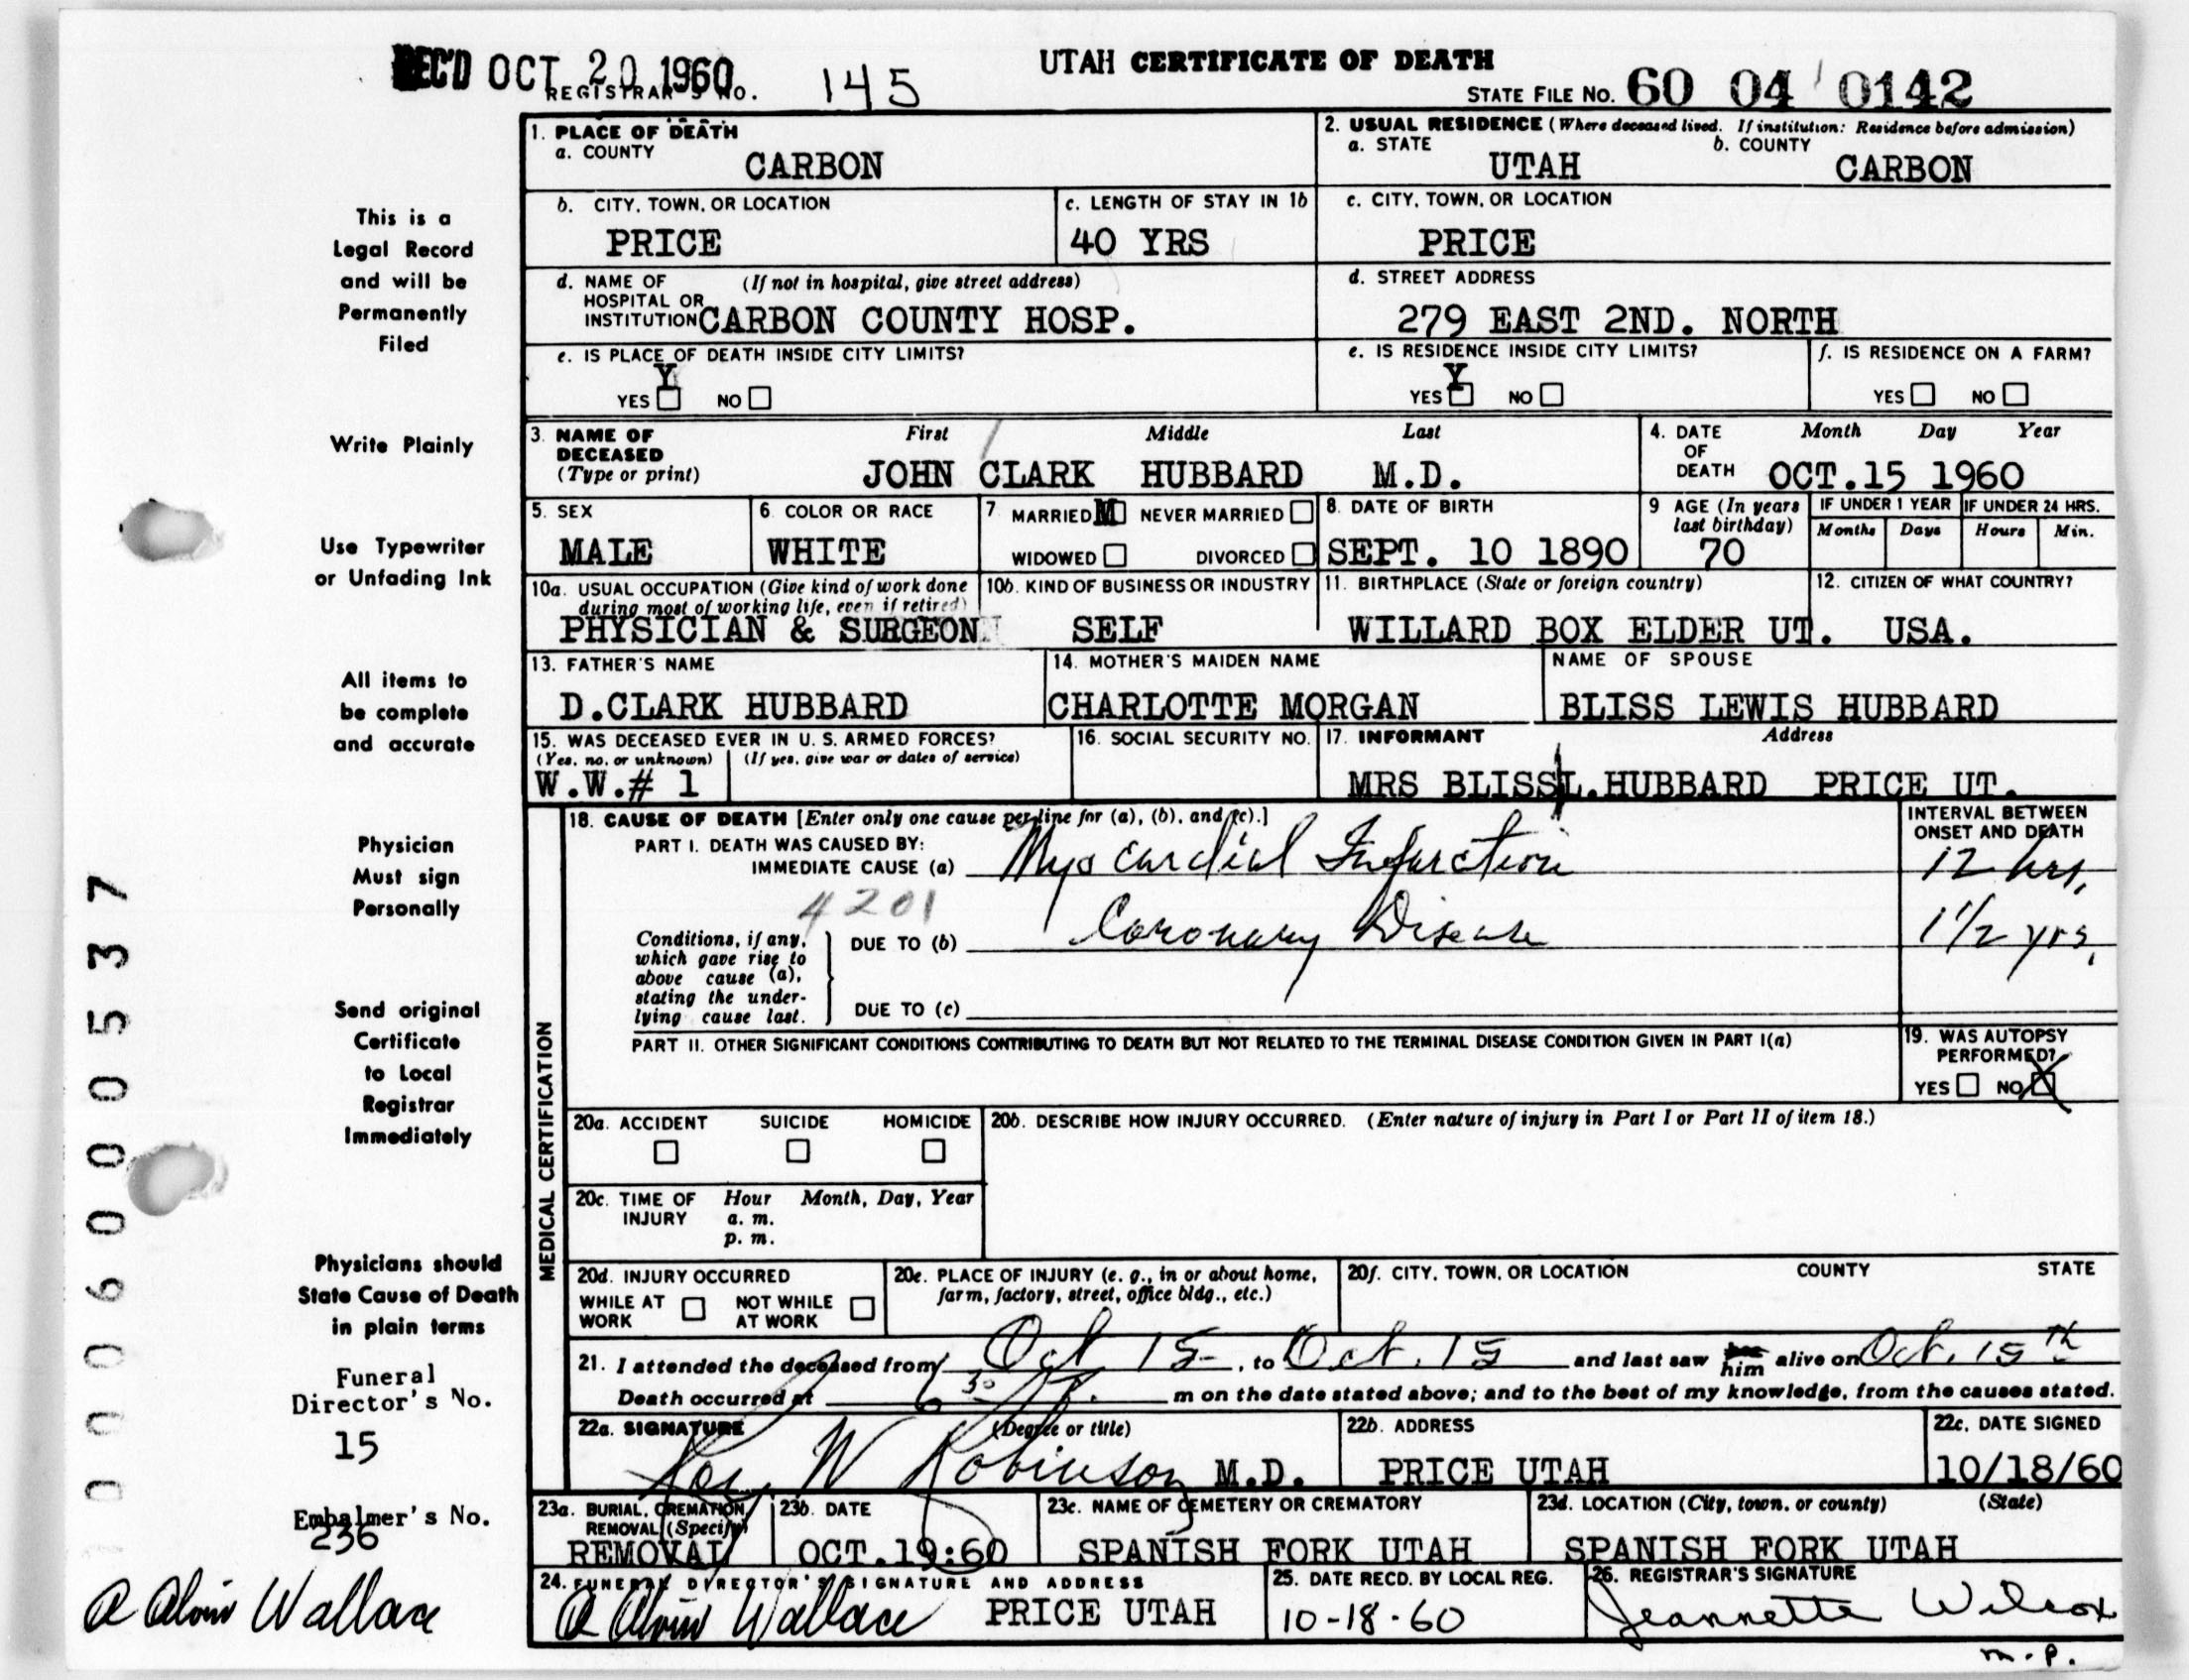 REC'D OCT 20 1960
UTAH CERTIFICATE OF DEATH
REGISTRAR'S NO. 145
STATE FILE NO. 60 04 0142
1. PLACE OF DEATH
a. COUNTY
CARBON
2. USUAL RESIDENCE (Where deceased lived. If institution: Residence before admission)
a. STATE b. COUNTY
UTAH CARBON
b. CITY, TOWN, OR LOCATION
PRICE
c. LENGTH OF STAY IN 1b
40 YRS
c. CITY, TOWN, OR LOCATION
PRICE
d. NAME OF (If not in hospital, give street address)
HOSPITAL OR
INSTITUTION CARBON COUNTY HOSP.
d. STREET ADDRESS
279 EAST 2ND. NORTH
e. IS PLACE OF DEATH INSIDE CITY LIMITS?
Y
YES NO
e. IS RESIDENCE INSIDE CITY LIMITS?
Y
YES NO
f. IS RESIDENCE ON A FARM?
YES NO
3. NAME OF DECEASED (Type or print)
First Middle Last
JOHN CLARK HUBBARD M.D.
4. DATE OF DEATH
Month Day Year
OCT.15 1960
5. SEX
MALE
6. COLOR OR RACE
WHITE
7 MARRIED M NEVER MARRIED
WIDOWED DIVORCED
8. DATE OF BIRTH
SEPT. 10 1890
9 AGE (In years
last birthday)
70
IF UNDER 1 YEAR
Months Days
IF UNDER 24 HRS.
Hours Min.
10a. USUAL OCCUPATION (Give kind of work done
during most of working life, even if retired)
PHYSICIAN & SURGEON
10b. KIND OF BUSINESS OR INDUSTRY
SELF
11. BIRTHPLACE (State or foreign country)
WILLARD BOX ELDER UT.
12. CITIZEN OF WHAT COUNTRY?
USA.
13. FATHER'S NAME
D.CLARK HUBBARD
14. MOTHER'S MAIDEN NAME
CHARLOTTE MORGAN
NAME OF SPOUSE
BLISS LEWIS HUBBARD
15. WAS DECEASED EVER IN U. S. ARMED FORCES?
(Yes, no, or unknown) (If yes, give war or dates of service)
W.W.# 1
16. SOCIAL SECURITY NO.
17. INFORMANT Address
MRS BLISS L.HUBBARD PRICE UT.
MEDICAL CERTIFICATION
18. CAUSE OF DEATH [Enter only one cause per line for (a), (b), and (c).]
PART I. DEATH WAS CAUSED BY:
IMMEDIATE CAUSE (a) Myocardial Infarction
INTERVAL BETWEEN
ONSET AND DEATH
12 hrs,
4201
Conditions, if any,
which gave rise to
above cause (a),
stating the under-
lying cause last.
DUE TO (b) Coronary Disease
1 1/2 yrs,
DUE TO (c)
PART II. OTHER SIGNIFICANT CONDITIONS CONTRIBUTING TO DEATH BUT NOT RELATED TO THE TERMINAL DISEASE CONDITION GIVEN IN PART I(a)
19. WAS AUTOPSY
PERFORMED?
YES NO X
20a. ACCIDENT SUICIDE HOMICIDE
20b. DESCRIBE HOW INJURY OCCURRED. (Enter nature of injury in Part I or Part II of item 18.)
20c. TIME OF INJURY
Hour Month, Day, Year
a. m.
p. m.
20d. INJURY OCCURRED
WHILE AT WORK NOT WHILE AT WORK
20e. PLACE OF INJURY (e. g., in or about home,
farm, factory, street, office bldg., etc.)
20f. CITY, TOWN, OR LOCATION COUNTY STATE
21. I attended the deceased from Oct 15, to Oct. 15 and last saw her him alive on Oct. 15th
Death occurred at 6 30 m on the date stated above; and to the best of my knowledge, from the causes stated.
22a. SIGNATURE (Degree or title)
W Robinson M.D.
22b. ADDRESS
PRICE UTAH
22c. DATE SIGNED
10/18/60
23a. BURIAL, CREMATION,
REMOVAL (Specify)
REMOVAL
23b. DATE
OCT.19:60
23c. NAME OF CEMETERY OR CREMATORY
SPANISH FORK UTAH
23d. LOCATION (City, town, or county) (State)
SPANISH FORK UTAH
24. FUNERAL DIRECTOR'S SIGNATURE AND ADDRESS
A Alvin Wallace PRICE UTAH
25. DATE RECD. BY LOCAL REG.
10-18-60
26. REGISTRAR'S SIGNATURE
Jeannette Wilcox
m.p.
This is a
Legal Record
and will be
Permanently
Filed
Write Plainly
Use Typewriter
or Unfading Ink
All items to
be complete
and accurate
Physician
Must sign
Personally
Send original
Certificate
to Local
Registrar
Immediately
Physicians should
State Cause of Death
in plain terms
Funeral
Director's No.
15
Embalmer's No.
236
A Alvin Wallace
000600537